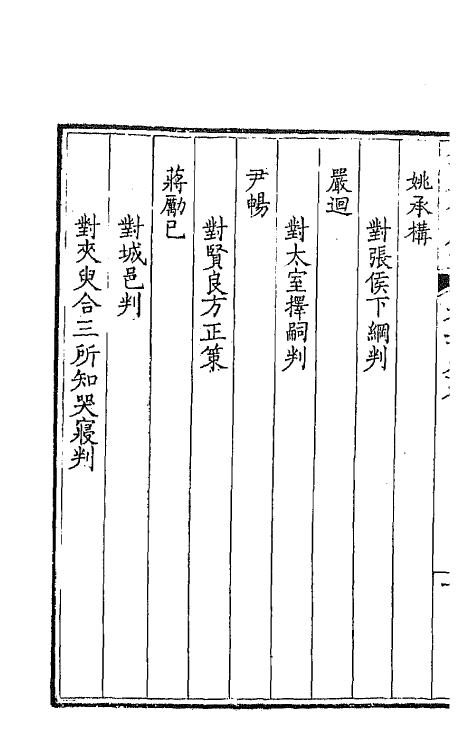 姚承構
對張侯下綱判
嚴迴
對太室擇嗣判
尹暢
對賢良方正策
蔣勵己
對城邑判
對夾臾合三所知哭寢判